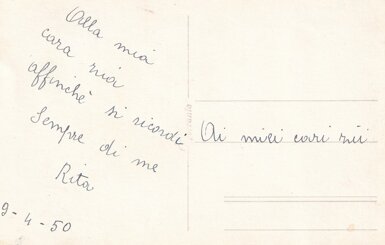 Alla mia
cara zia
affinchè si ricordi
sempre di me
Rita
9-4-50
Ai miei cari zii